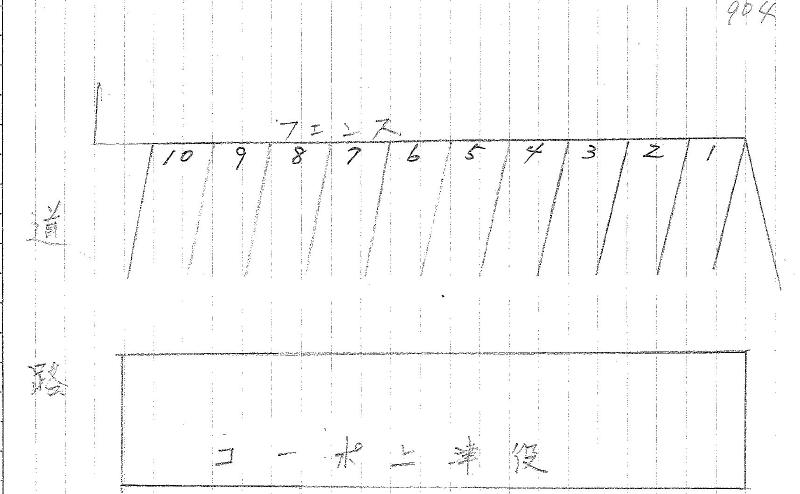 904
フェンス
10 9 8 7 6 5 4 3 2 1
道路
コーポ上津役